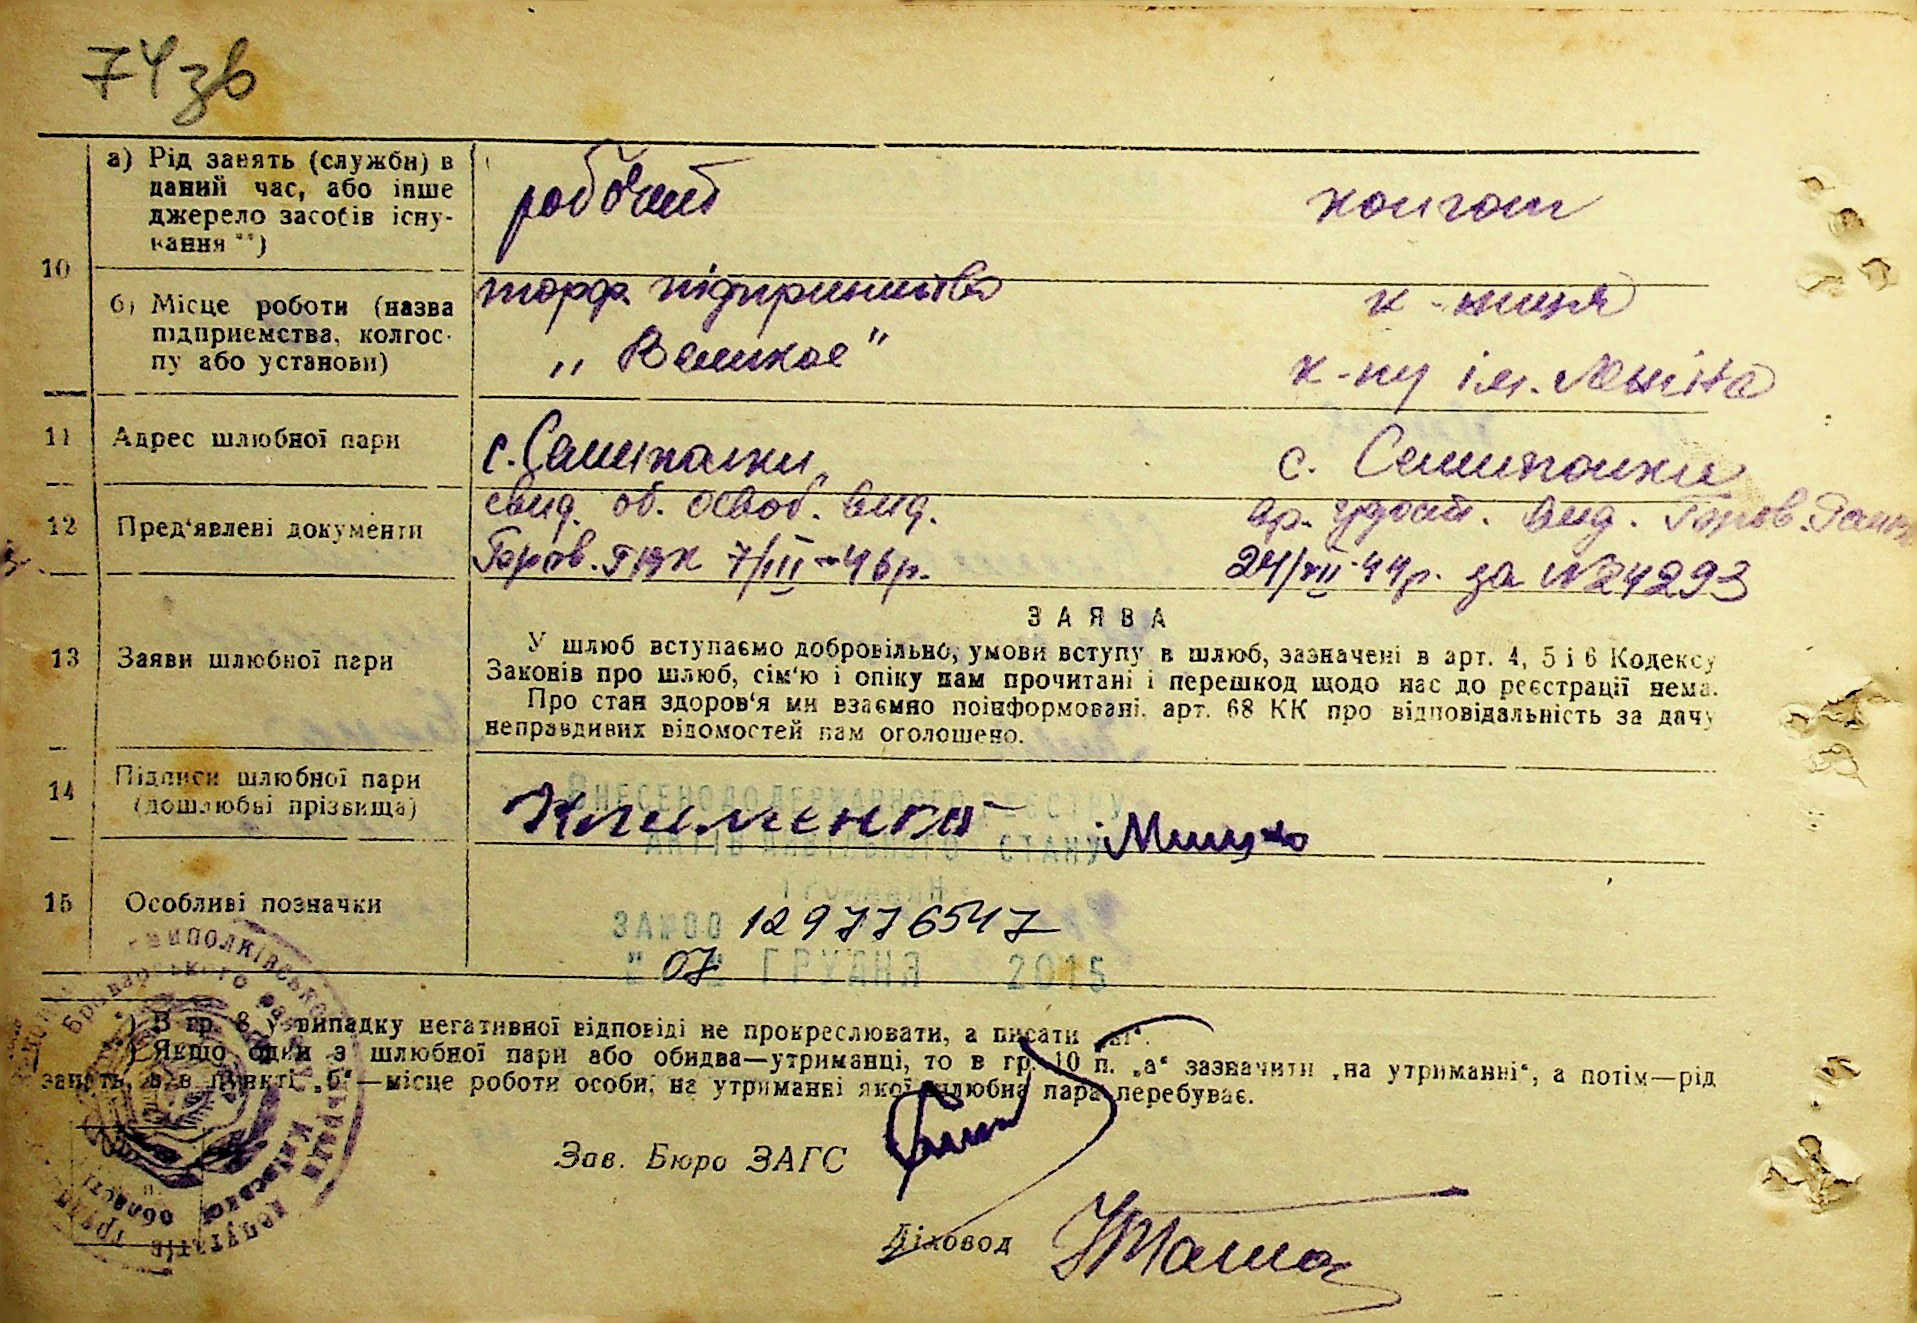 74зв
а) Рід занять (служби) в
даний час, або інше
джерело засобів існу-
вання **)
робочий
колгосп
10
б) Місце роботи (назва
підприємства, колгос-
пу або установи)
торф. підприємство
„Великое"
к-ниця
к-пу ім. Леніна
11 Адрес шлюбної пари
с. Семиполки
с. Семиполки
12 Пред'явлені документи
свид. об. освоб. вид.
7/III-46р.
вр. удост. вид.
24/XII-44р. за №24293
13 Заяви шлюбної пари
ЗАЯВА
У шлюб вступаємо добровільно, умови вступу в шлюб, зазначені в арт. 4, 5 і 6 Кодексу
Законів про шлюб, сім'ю і опіку нам прочитані і перешкод щодо нас до реєстрації нема.
Про стан здоров'я ми взаємно поінформовані. арт. 68 КК про відповідальність за дачу
неправдивих відомостей нам оголошено.
14 Підписи шлюбної пари
(дошлюбні прізвища)
ВНЕСЕНО ДО ДЕРЖАВНОГО РЕЄСТРУ
АКТІВ ЦИВІЛЬНОГО СТАНУ
ГРОМАДЯН
15 Особливі позначки
ЗА №00 129776547
"07" ГРУДНЯ 2015
*) В гр. 8 у випадку негативної відповіді не прокреслювати, а писати „ні".
**) Якщо один з шлюбної пари або обидва—утриманці, то в гр. 10 п. „а" зазначити „на утриманні", а потім—рід
занять, а в пункті „б"—місце роботи особи, на утриманні якої шлюбна пара перебуває.
Зав. Бюро ЗАГС
Діловод